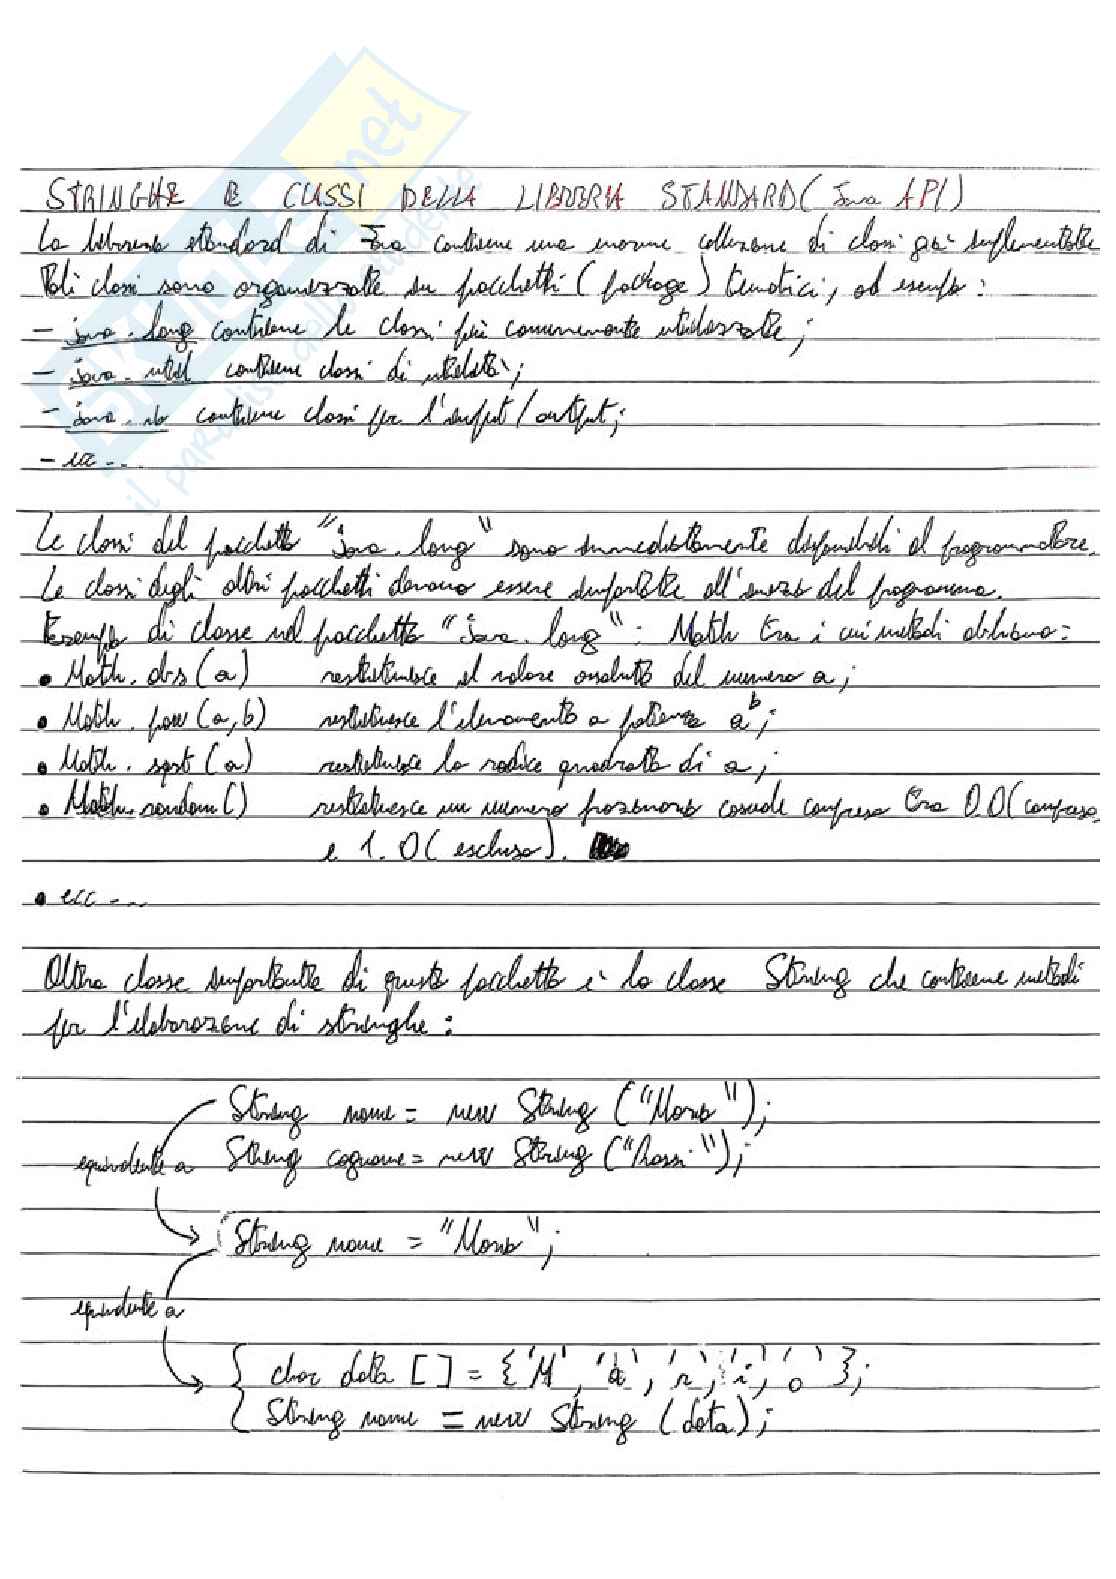 STRINGHE E CLASSI DELLA LIBRERIA STANDARD (Java API)
La libreria standard di Java contiene una enorme collezione di classi già implementate
Tali classi sono organizzate in pacchetti (package) tematici, ad esempio:
- java.lang contiene le classi più comunemente utilizzate;
- java.util contiene classi di utilità;
- java.io contiene classi per l'input/output;
- ecc...
Le classi del pacchetto "java.lang" sono immediatamente disponibili al programmatore.
Le classi degli altri pacchetti devono essere importate all'inizio del programma.
Esempio di classe nel pacchetto "java.lang": Math tra i cui metodi abbiamo:
• Math.abs(a) restituisce il valore assoluto del numero a;
• Math.pow(a,b) restituisce l'elevamento a potenza a^b;
• Math.sqrt(a) restituisce la radice quadrata di a;
• Math.random() restituisce un numero frazionario casuale compreso tra 0.0 (compreso)
e 1.0 (escluso).
• ecc...
Altra classe importante di questo pacchetto è la classe String che contiene metodi
per l'elaborazione di stringhe:
String nome = new String ("Mario");
equivalente a String cognome = new String ("Rossi");
String nome = "Mario";
equivalente a
{ char data [] = {'M', 'a', 'r', 'i', 'o'};
String nome = new String (data);
SKUOLA.net
il paradiso dello studente